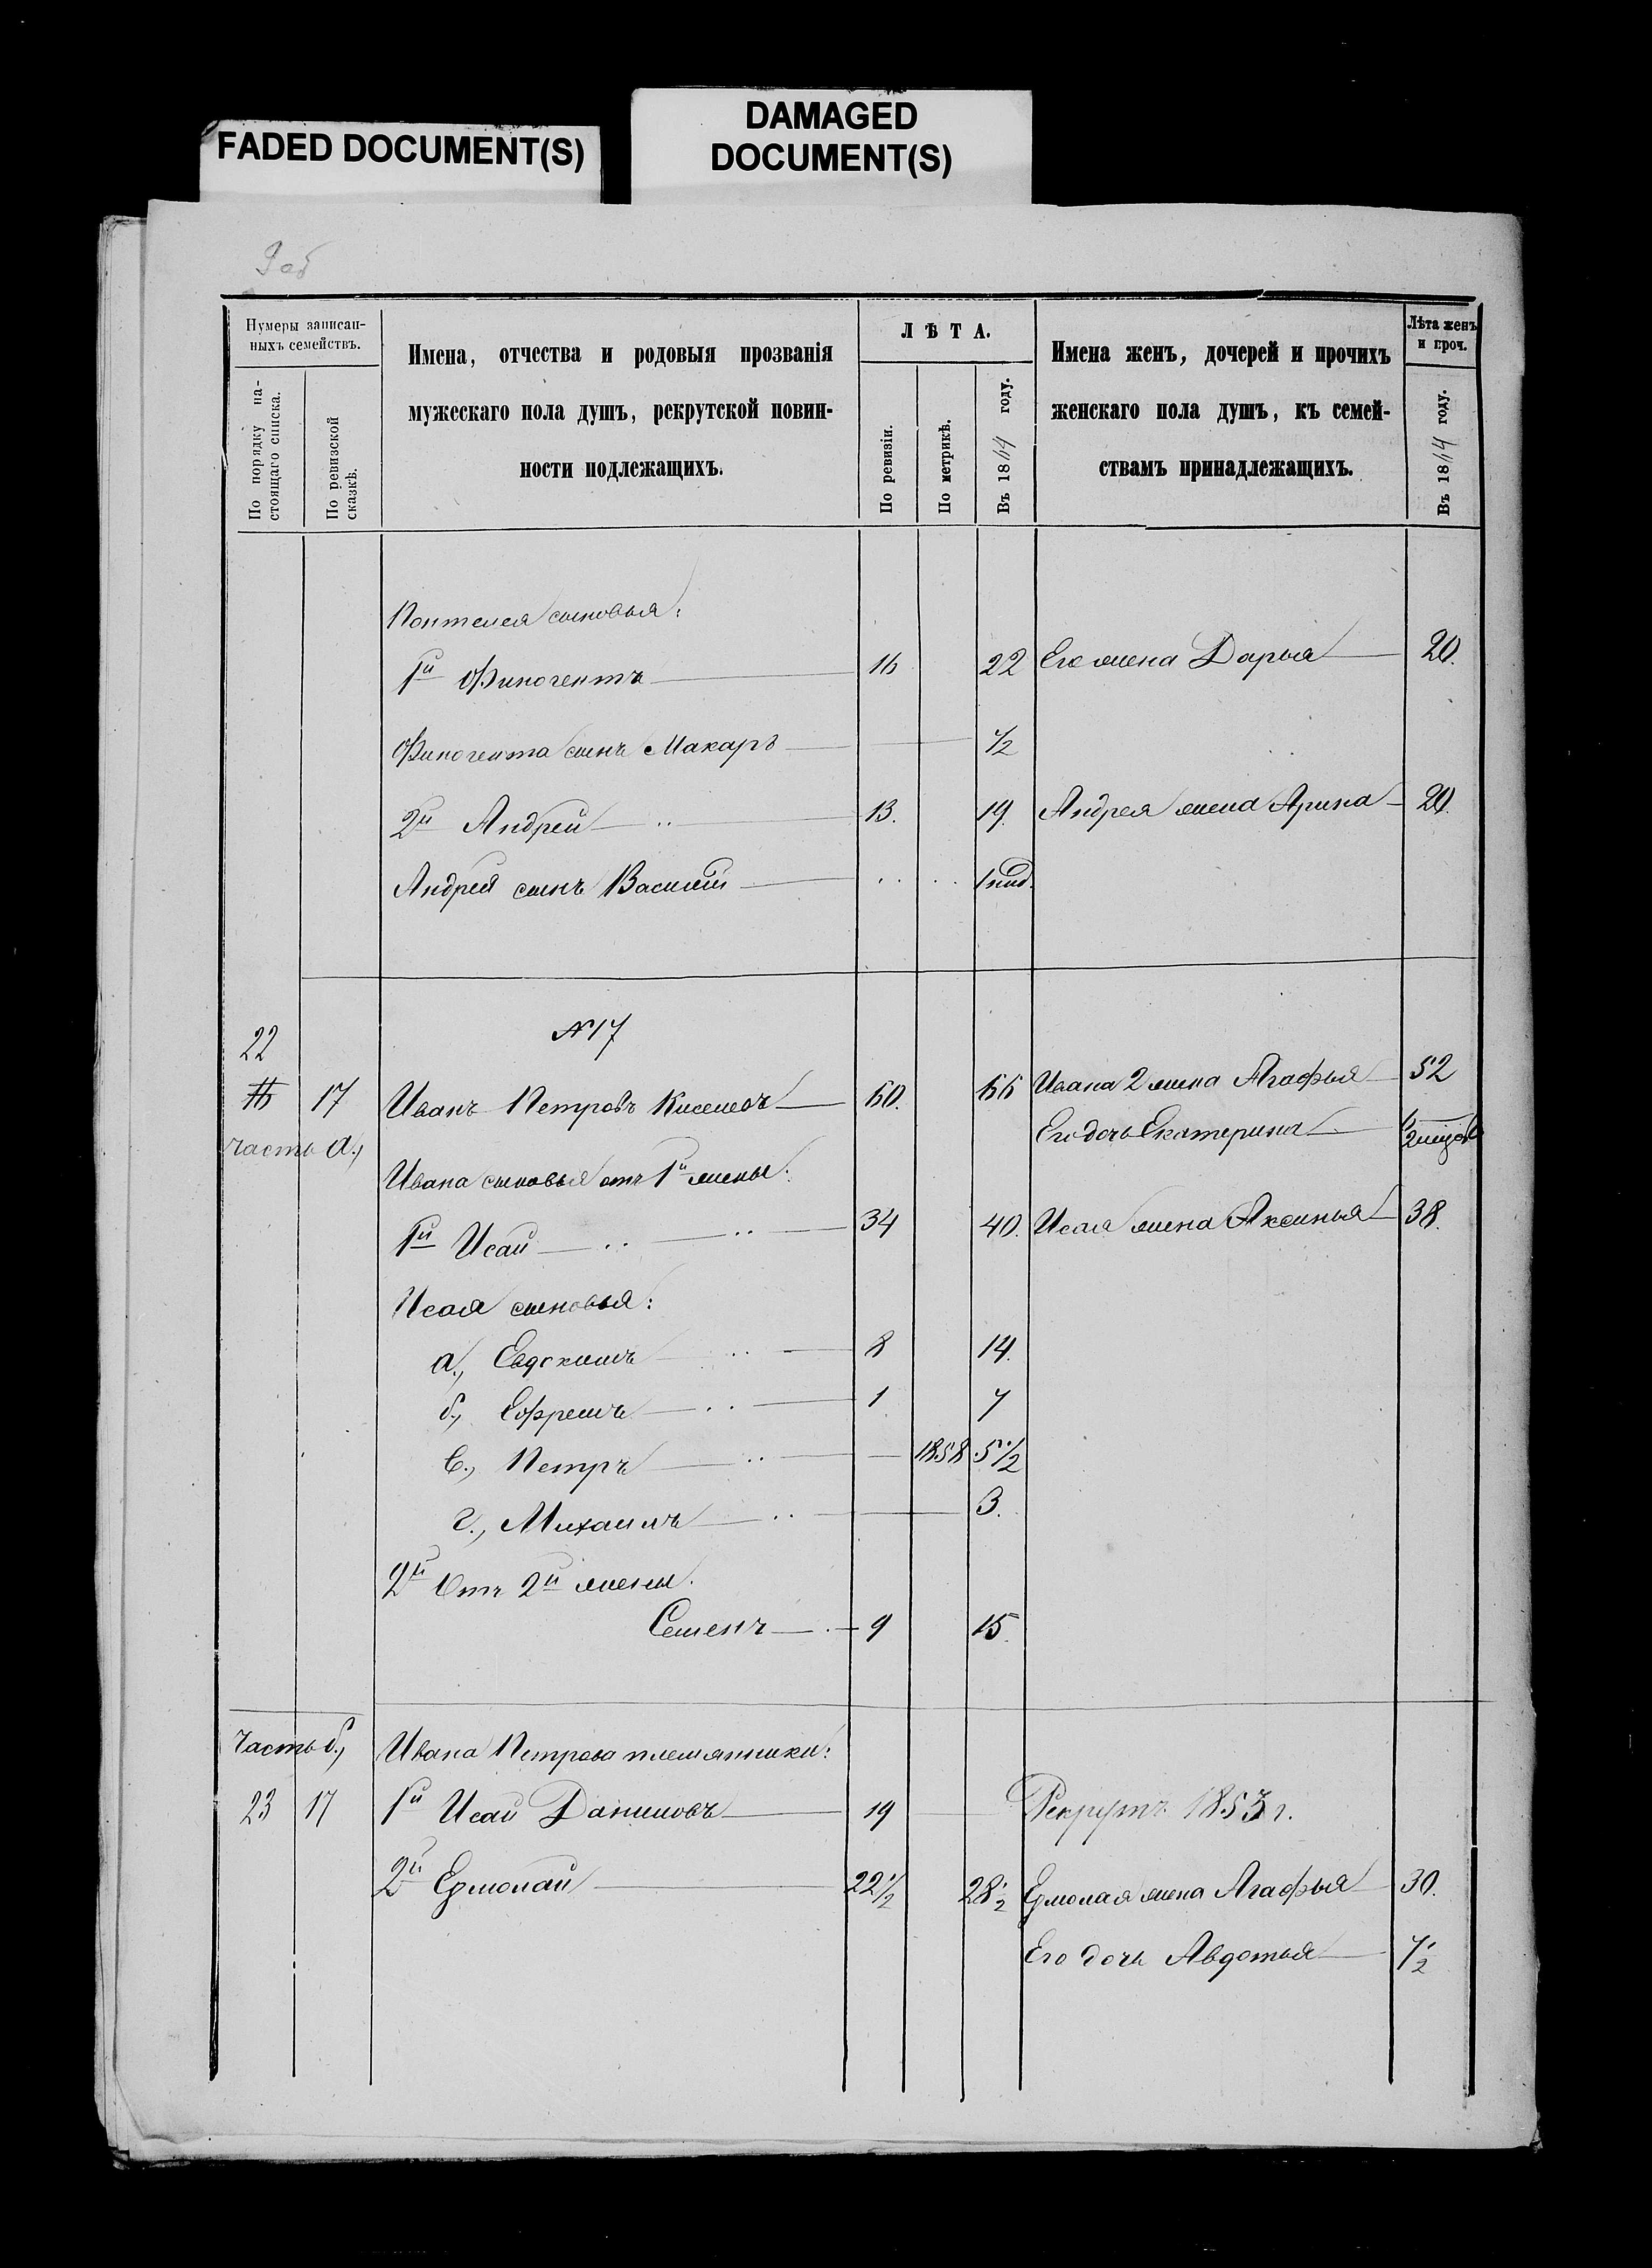 FADED DOCUMENT(S)
DAMAGED
DOCUMENT(S)
9 об
Нумеры записан-
ныхъ семействъ.
По порядку на-
стоящаго списка.
По ревизской
сказкѣ.
Имена, отчества и родовыя прозванія
мужескаго пола душъ, рекрутской повин-
ности подлежащихъ.
ЛѢТА.
По ревизіи.
По метрикѣ.
Въ 1864 году.
Имена женъ, дочерей и прочихъ
женскаго пола душъ, къ семей-
ствамъ принадлежащихъ.
Лѣта женъ
и проч.
Въ 1864 году.
Понтелея сыновья:
1й Финогентъ 16 22 Его жена Дарья 20.
Финогента сынъ Макаръ 1/2
2й Андрей 13. 19. Андрея жена Арина 20.
Андрея сынъ Василій 1 нид.
№ 17
22
17 Иванъ Петровъ Киселевъ 60. 66 Ивана 2 жена Агафья 52
часть а., Его дочь Екатерина
Ивана сыновья отъ 1й жены:
1й Исай 34 40. Исая жена Аксинья 38.
Исая сыновья:
а., Евдокимъ 8 14.
б., Ефремъ 1 7
в., Петръ 1858 5 1/2
г., Михаилъ 3.
2й Отъ 2й жены.
Семенъ 9 15.
Часть б., Ивана Петрова племянники:
23 17 1й Исай Даниловъ 19 Рекрутъ 1853 г.
2й Ермолай 22 1/2 28 1/2 Ермолая жена Агафья 30.
Его дочь Авдотья 7 1/2